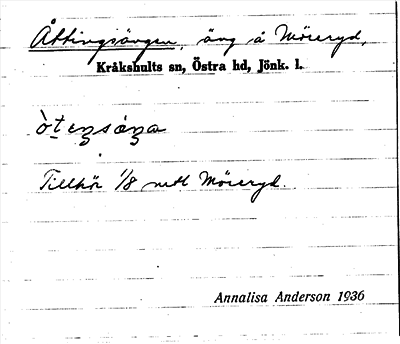 Åttingsängen, äng å Möseryd,
Kråkshults sn, Östra hd, Jönk. l.
Tillhör 1/8 mtl Möseryd.
Annalisa Anderson 1936